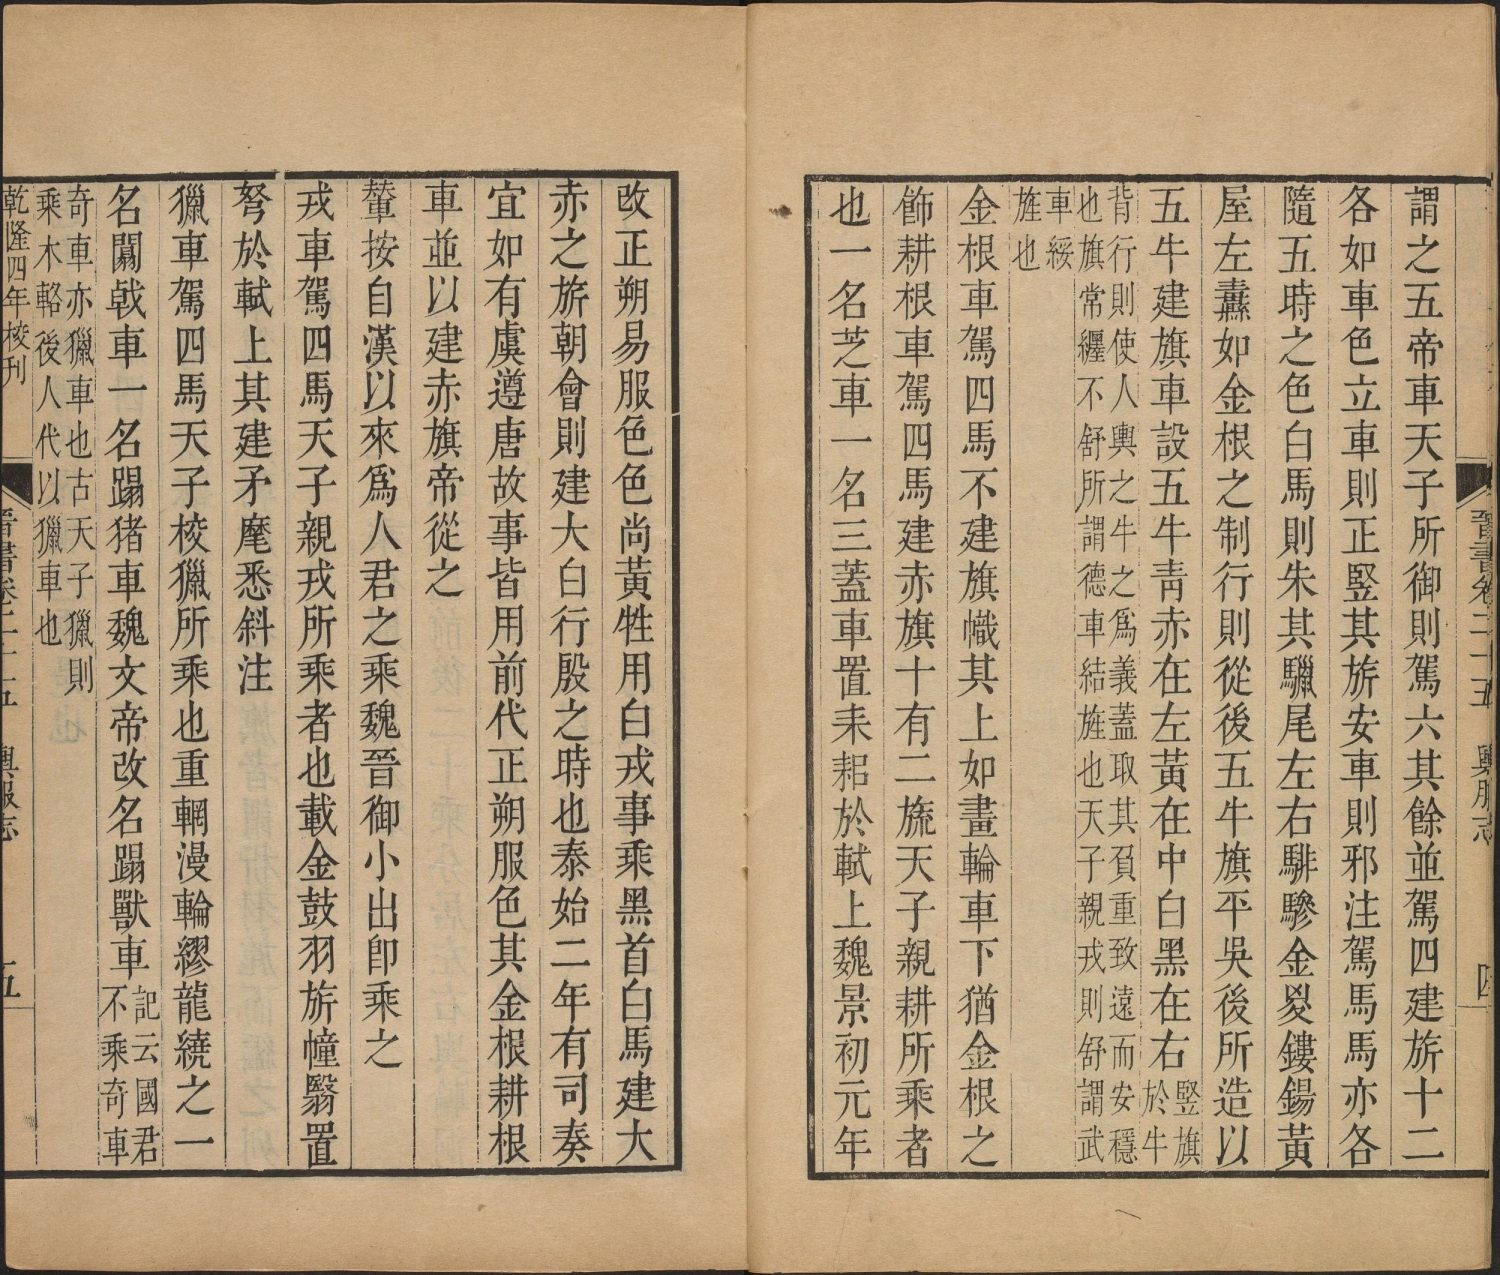 謂之五帝車天子所御則駕六其餘並駕四建旂十二
各如車色立車則正竪其旂安車則邪注駕馬馬亦各
隨五時之色白馬則朱其鬣尾左右騑驂金㚇鏤鍚黃
屋左纛如金根之制行則從後五牛旗平吳後所造以
五牛建旗車設五牛靑赤在左黃在中白黑在右竪旗於牛
背行則使人輿之牛之爲義蓋取其負重致遠而安穩
也旗常纏不舒所謂德車結旌也天子親戎則舒謂武
車綏
旌也
金根車駕四馬不建旗幟其上如畫輪車下猶金根之
飾耕根車駕四馬建赤旗十有二旒天子親耕所乘者
也一名芝車一名三蓋車置耒耜於軾上魏景初元年
晉書卷二十五 輿服志 四
改正朔易服色色尚黃牲用白戎事乘黑首白馬建大
赤之旂朝會則建大白行殷之時也泰始二年有司奏
宜如有虞遵唐故事皆用前代正朔服色其金根耕根
車並以建赤旗帝從之
輦按自漢以來爲人君之乘魏晉御小出卽乘之
戎車駕四馬天子親戎所乘者也載金鼓羽旂幢翳置
弩於軾上其建矛麾悉斜注
獵車駕四馬天子校獵所乘也重輞漫輪繆龍繞之一
名闟戟車一名蹋猪車魏文帝改名蹋獸車記云國君不乘奇車
奇車亦獵車也古天子獵則
乘木輅後人代以獵車也
乾隆四年校刊 晉書卷二十五 輿服志 五